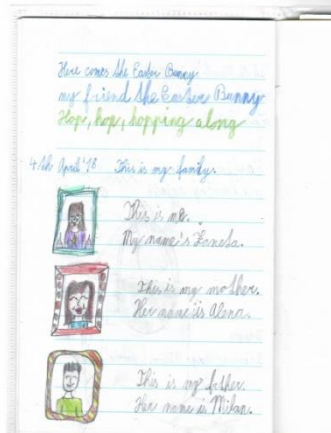 Here comes the Easter Bunny
my friend the Easter Bunny
Hop, hop, hopping along
4th April '16 This is my family.
This is me.
My name's Žaneta.
This is my mother.
Her name is Alena.
This is my father.
Her name is Milan.